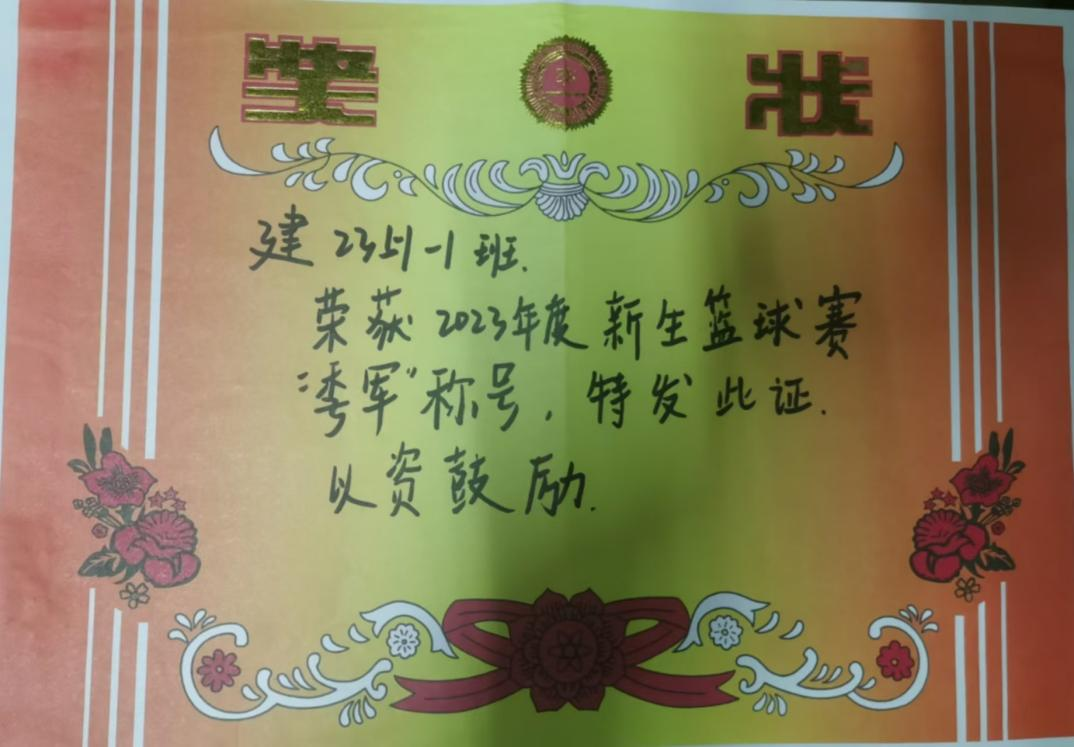 奖 状
建 23 -1 班.
荣获 2023年度 新生篮球赛
"季军"称号, 特发此证.
以资鼓励.